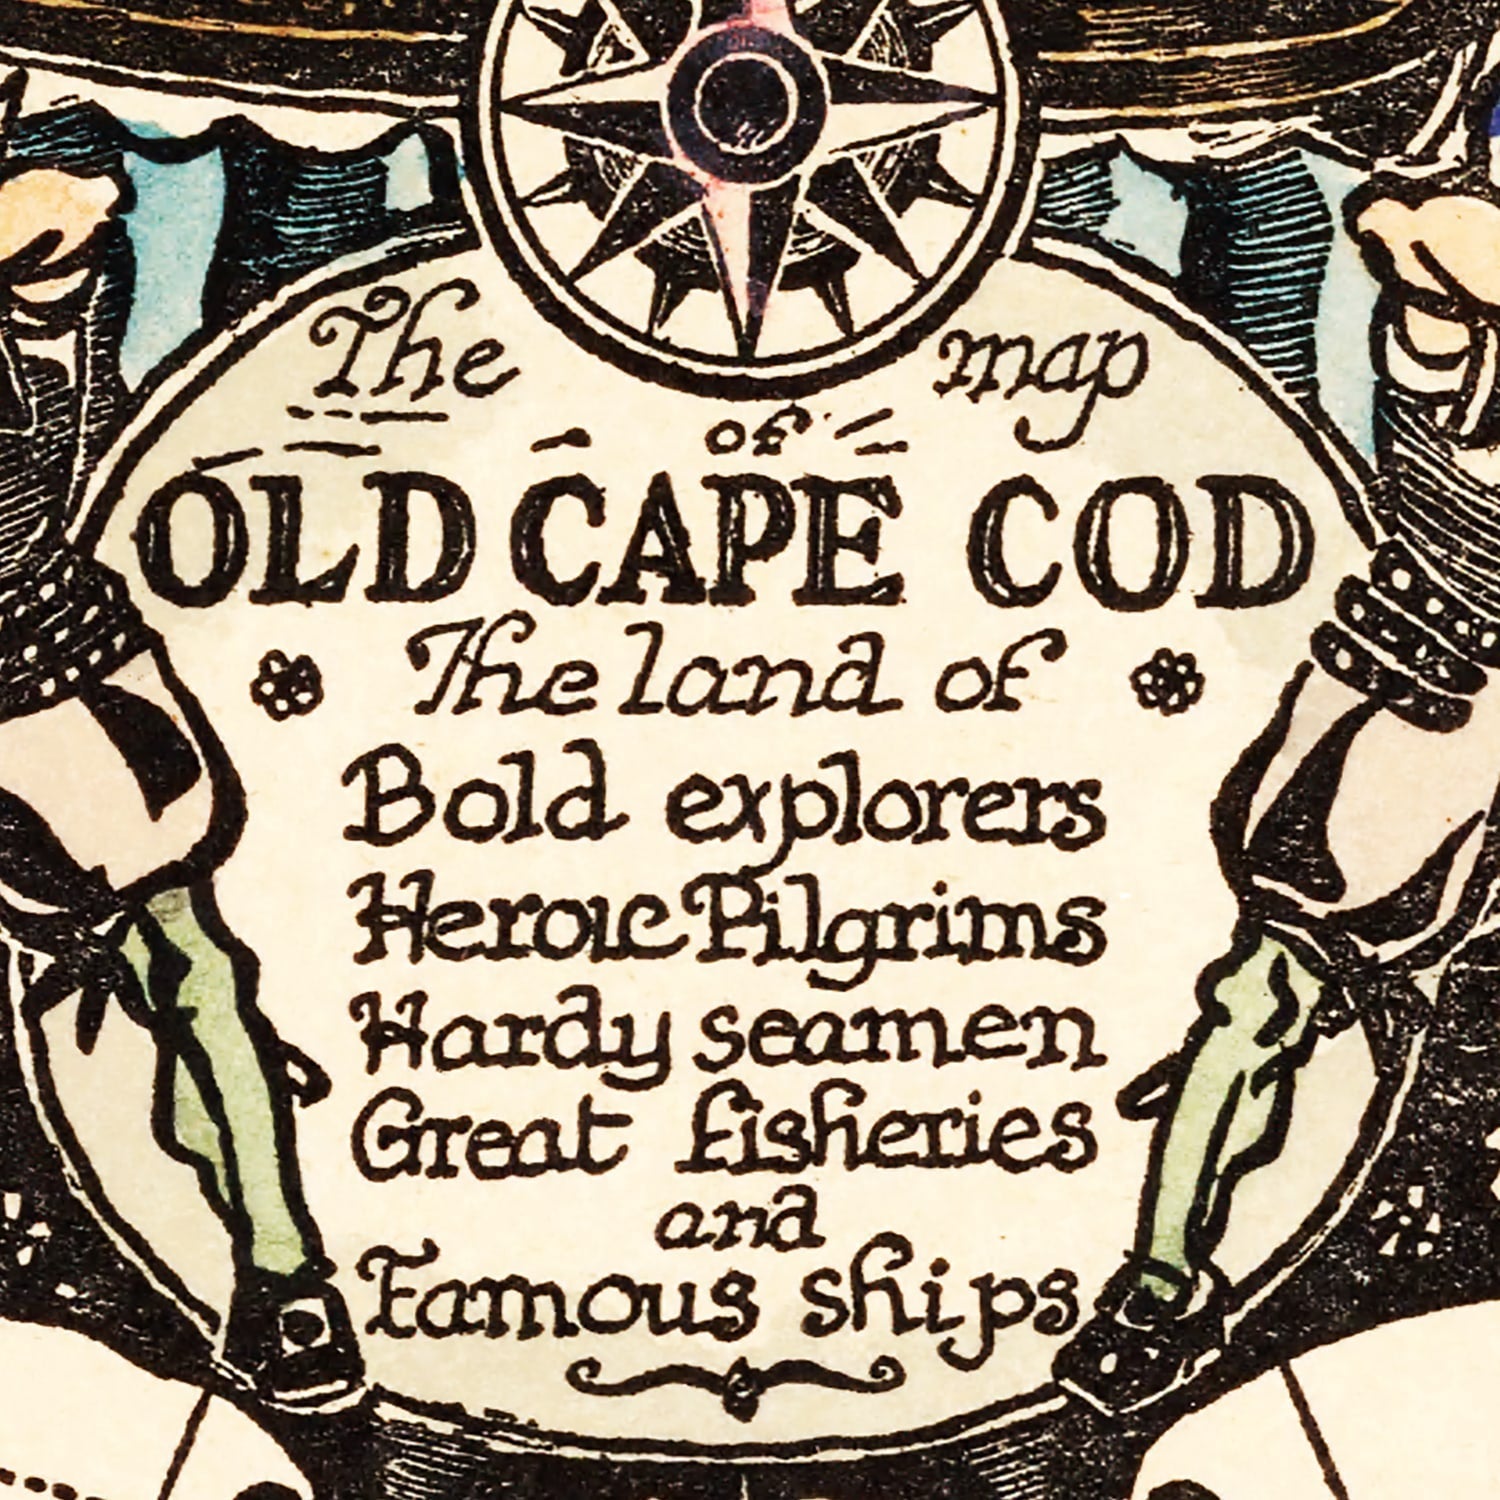 The map
of
OLD CAPE COD
The land of
Bold explorers
Heroic Pilgrims
Hardy seamen
Great fisheries
and
Famous ships